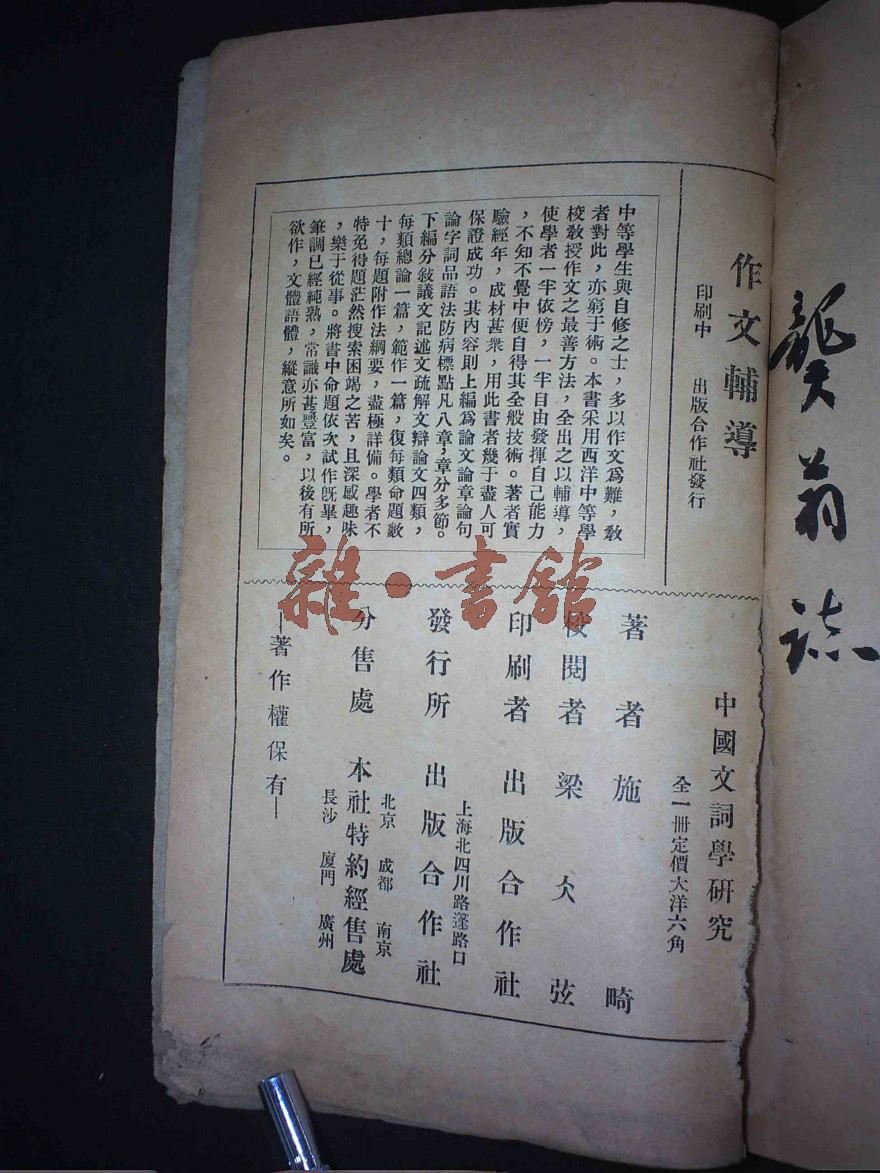 龔翁誌
作文輔導
印刷中 出版合作社發行
中等學生與自修之士，多以作文爲難，教
者對此，亦窮于術。本書采用西洋中等學
校敎授作文之最善方法，全出之以輔導，
使學者一半依傍，一半自由發揮自己能力
，不知不覺中便自得其全般技術。著者實
驗經年，成材甚衆，用此書者幾于盡人可
保證成功。其內容則上編爲論文論章論句
論字詞品語法防病標點凡八章，章分多節。
下編分敍議文記述文疏解文辯論文四類，
每類總論一篇，範作一篇，復每類命題數
十，每題附作法綱要，盡極詳備。學者不
特免得題茫然搜索困竭之苦，且深感趣味
，樂于從事。將書中命題依次試作旣畢，
筆調已經純熟，常識亦甚豐富，以後有所
欲作，文體語體，縱意所如矣。
中國文詞學硏究
全一冊定價大洋六角
著者施畸
校閱者梁仌弦
印刷者出版合作社
上海北四川路蓬路口
發行所出版合作社
北京 成都 南京
分售處 本社特約經售處
長沙 廈門 廣州
—著作權保有—
雜·書館